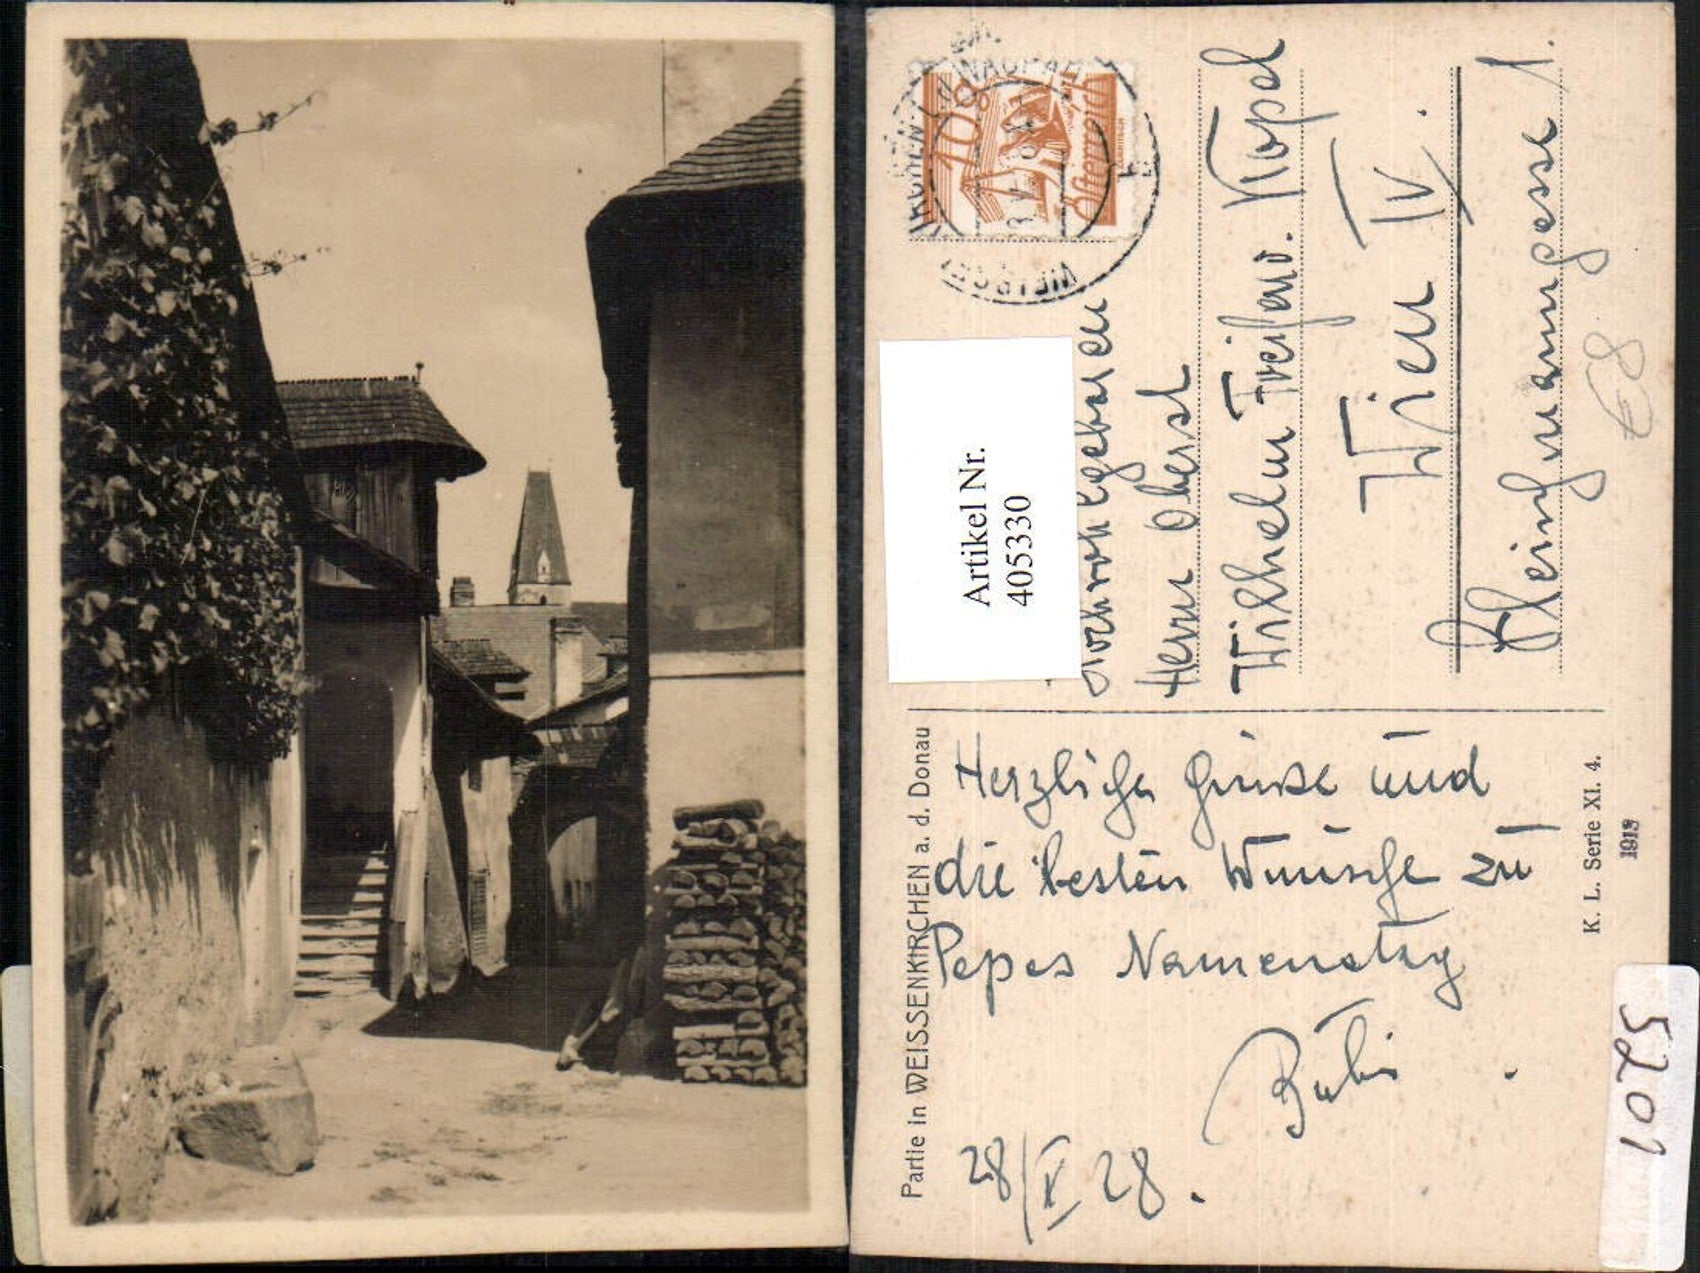 Partie in WEISSENKIRCHEN a. d. Donau
Herzliche Grüße und
die besten Wünsche zu
Pepes Namenstag
Bubi
28/V 28.
10g
Österreich
Artikel Nr.
405330
Hochwohlgeboren
Herrn Oberst
Wilhelm
Wien IV.
1.
K. L. Serie XI. 4.
1913
€8
5201